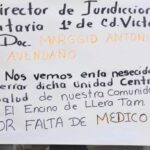 Director de Juridiccion
itaria 1ª de Cd. Victo
Doc. MARGGID ANTONI
AVENDAÑO
Nos vemos enta nesecida
errar dicha Unidad Cent
Salud de nuestra Comunida
El Encino de LLera Tam
POR FALTA DE MEDICO